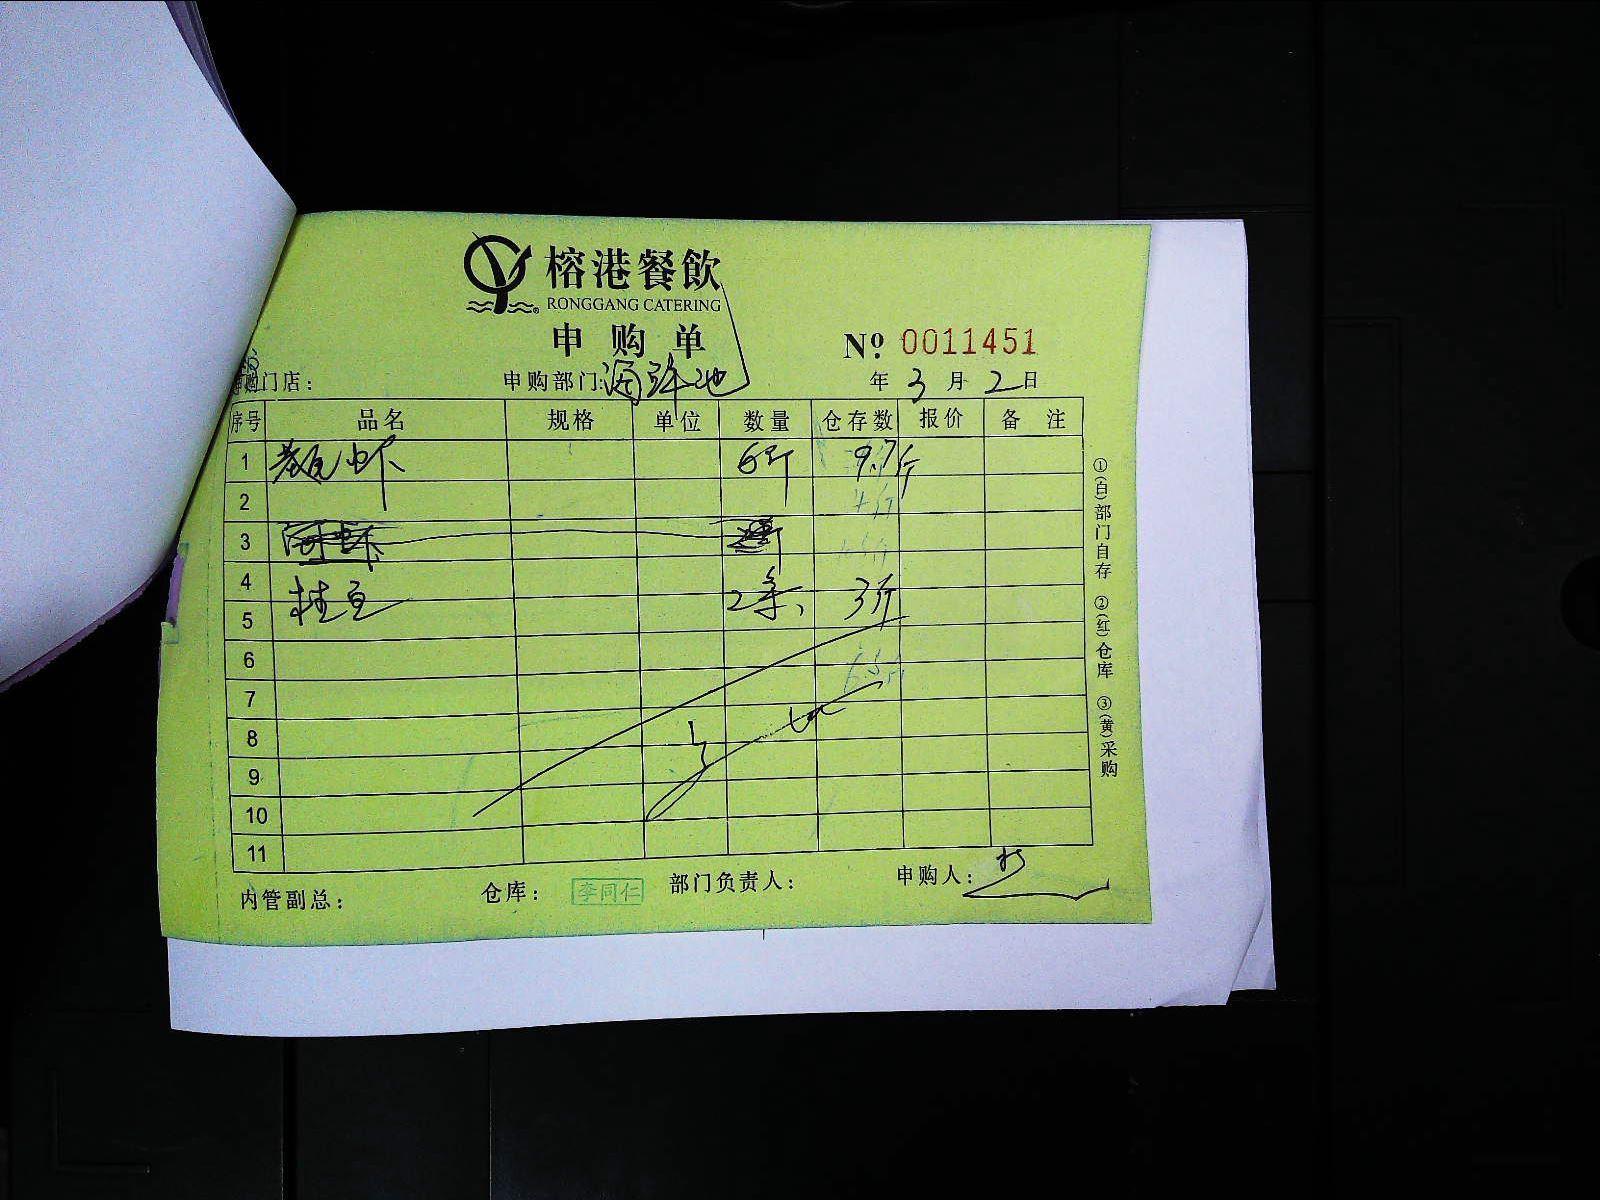 榕港餐飲
RONGGANG CATERING
申购单
Nº 0011451
申购门店： 申购部门：海鲜池 年 3 月 2 日
序号 品名 规格 单位 数量 仓存数 报价 备注
1 虾 6斤 9.7斤
2 4斤
3
4
5 2条 3斤
6
7
8
9
10
11
①(白)部门自存 ②(红)仓库 ③(黄)采购
内管副总： 仓库： 李同仁 部门负责人： 申购人：